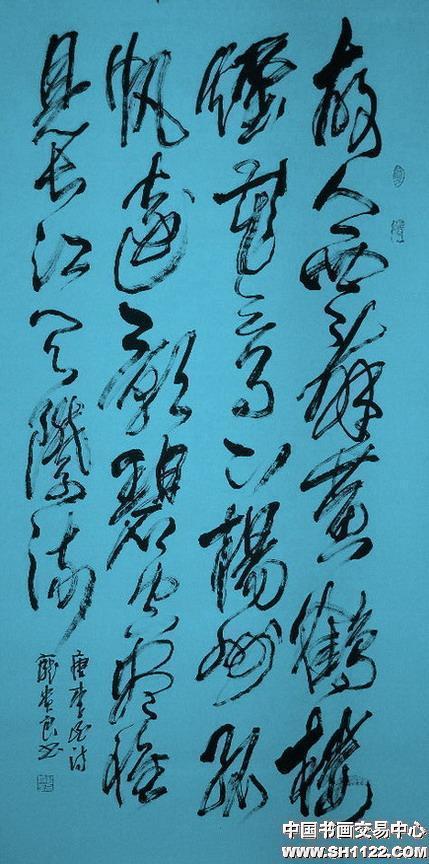 故人西辭黃鶴樓
煙花三月下揚州孤
帆遠影碧空盡惟
見長江天際流
唐李白詩
中国书画交易中心
www.SH1122.com